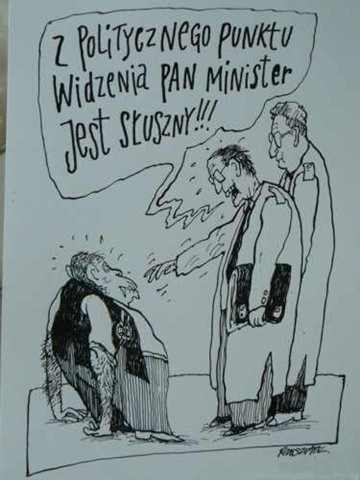 Z POLITYCZNEGO PUNKTU
WIDZENIA PAN MINISTER
JEST SŁUSZNY!!!